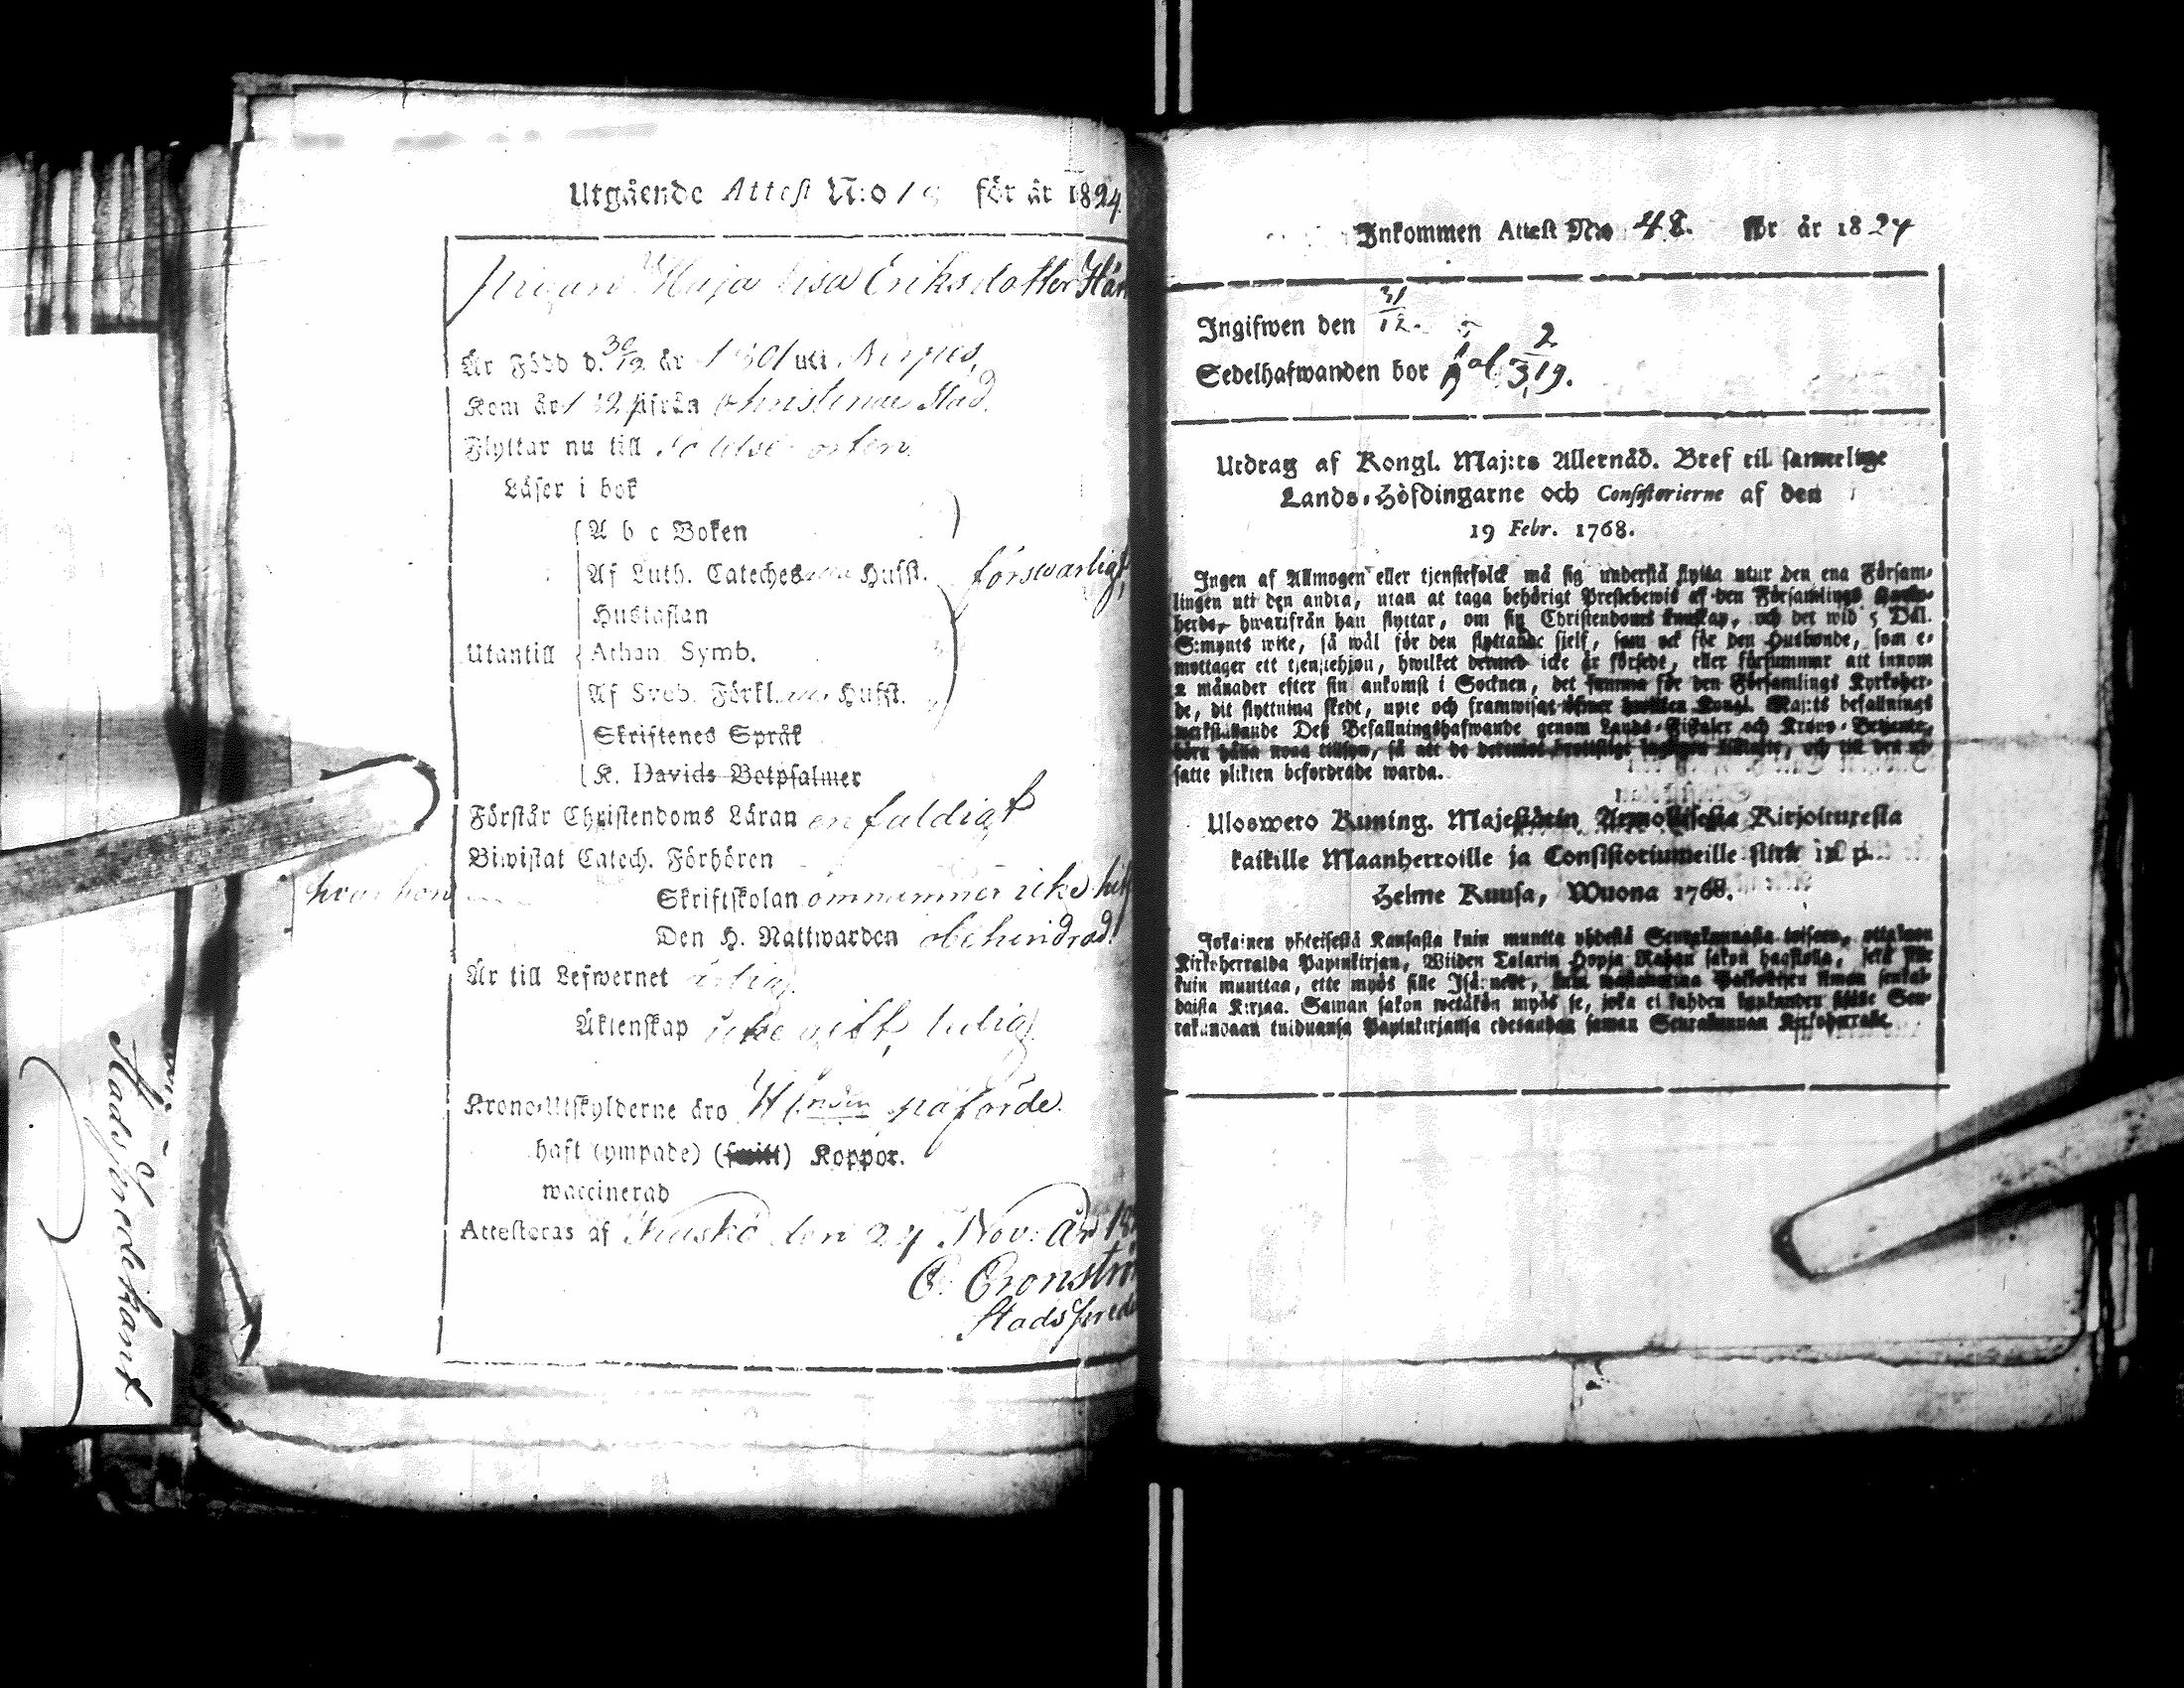 Utgående Attest N:o 1 för år 1824.
Pigan Maja Lisa Eriksdotter
Är Född d. 30/12 år 1801 uti Nerpes,
Kom år ifrån Christinæ Stad.
Flyttar nu till födelse orten
Läser i bok
A b c Boken
Af Luth. Cateches Husst. förswarligt,
Hustaflan
Utantill Athan. Symb.
Af Sveb. Förkl. Husst.
Skriftenes Språk
K. Davids Botpsalmer
Förstår Christendoms Läran enfaldigt
Biwistat Catech. Förhören
hvar hon Skriftskolan omnummer icke
Den H. Nattwarden obehindrad.
Är till Lefwernet ärlig
Äktenskap icke gift, ledig.
Krono-Utskylderne äro påförde.
haft (ympade) Koppor.
waccinerad
Attesteras af Kaskö den 24 Nov: År
C. Cronström
Stads
Stadspredikant
Inkommen Attest N:o 48. för år 1824
Ingifwen den 31/12.
Sedelhafwanden bor
Utdrag af Kongl. Maj:ts Allernåd. Bref til samtelige
Lands-Höfdingarne och Consistorierne af den
19 Febr. 1768.
Ingen af Allmogen eller tjenstefolck må sig understå flytta utur den ena Försam-
lingen uti den andra, utan at taga behörigt Prestebewis af den Församlings Kyrko-
herde, hwarifrån han flyttar, om sin Christendoms kunskap, och det wid 5 Dal.
S:mynts wite, så wäl för den flyttande sjelf, som ock för den Husbonde, som e-
mottager ett tjenstehjon, hwilket dermed icke är försedt, eller försummar att innom
2 månader efter sin ankomst i Socknen, det samma för den Församlings Kyrkoher-
de, dit flyttning skedt, upte och framwisa; Kongl. Maj:ts befallnings
werkställande Des Befallningshafwande genom Lands-Fiskaler och Krono-Betjente,
böra hålla noga tillsyn, så att de och till den ut-
satte plikten befordrade warda.
Uloswето Kuning. Majestätin Armollisesta Kirjoituxesta
kaikille Maanherroille ja Consistoriumeille siitä 19 p.
Helme Kuusa, Wuona 1768.
Jokainen yhteisestä Kansasta kuin muutta yhdestä Seurakunnasta toiseen, ottakoon
Kirkoherralda Papinkirjan, Wiiden Talarin Hopja Rahan sakon haastolla, sekä sille
kuin muuttaa, ette myös sille Isännelle,
daista Kirjaa. Saman sakon wetäkön myös se, joka ei kahden kuukauden sisälle Seu-
rakundaan tulduansa Papinkirjansa edesanna saman Seurakunnan Kirkoherralle.